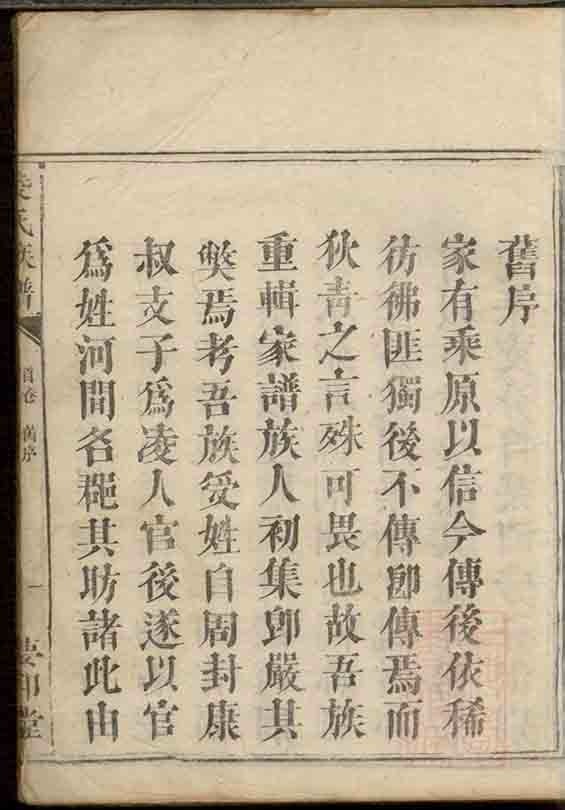 舊序
家有乘原以信今傳後依稀
彷彿匪獨後不傳卽傳焉而
狄靑之言殊可畏也故吾族
重輯家譜族人初集卽嚴其
獘焉考吾族受姓自周封康
叔支子爲凌人官後遂以官
爲姓河間名郡其昉諸此由
氏族譜
首卷 舊序
一
堂